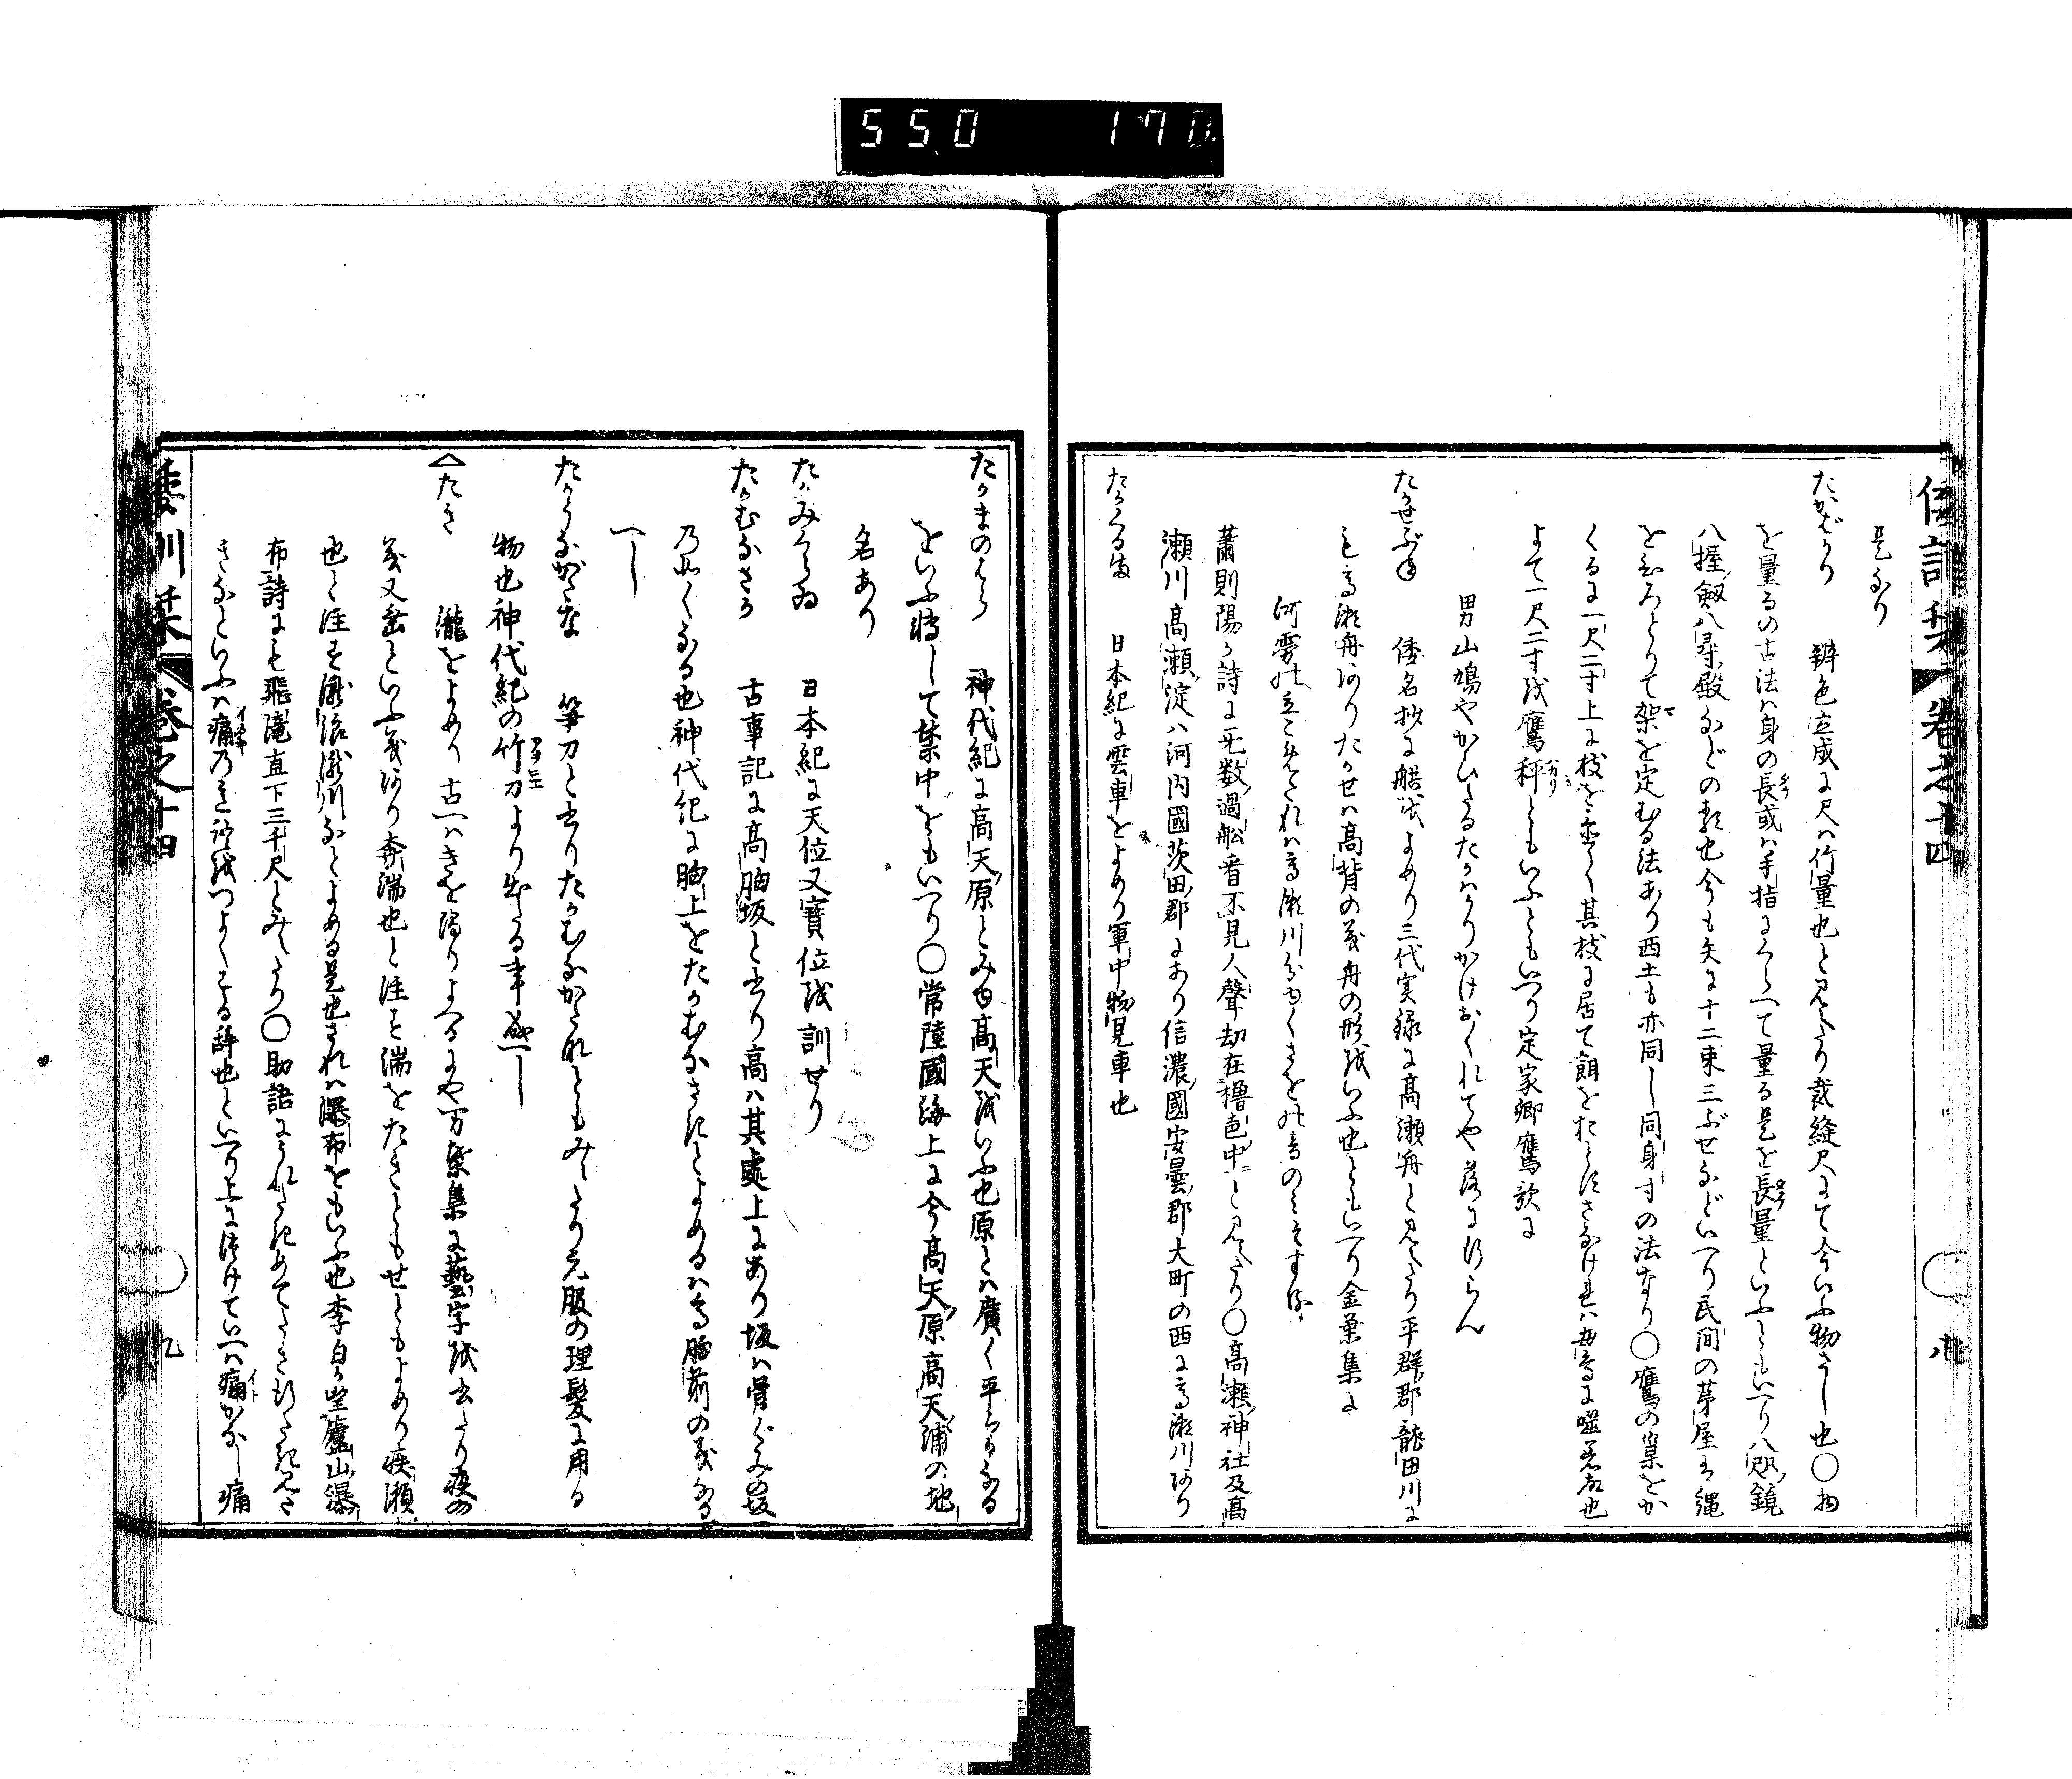 550 170
倭訓栞 巻之十四 八
是なり
たかばかり 辨色立成に尺ハ竹量也と見えたり裁縫尺にて今いふ物さし也〇物
を量るの古法ハ身の長或ハ手指にくらへて量る是を長量といふともいへり八咫鏡
八握劔八尋殿などの類也今も矢に十二束三ぶせなどいへり民間の茅屋を縄
をむろとりて架を定むる法あり西土も亦同し同身寸の法なり〇鷹の巣をか
くるに一尺二寸上に枝を
よて一尺二寸を鷹秤ともいふともいへり定家卿鷹歌に
男山鳩やかひたるたかはかりかけおくれてや落に行らん
たかせぶね 倭名抄に艜をよめり三代実録に高瀬舟と見えたり平群郡龍田川に
も高瀬舟ありたかせハ高背の義舟の形をいふ也ともいへり金葉集に
河霧の立こめつれは高瀬川分ゆくさをの音のみそする
蕭則陽か詩に無数過船看不見人聲却在櫓声中と見えたり〇高瀬神社及高
瀬川高瀬淀ハ河内國茨田郡にあり信濃國安曇郡大町の西に高瀬川あり
たかくるま 日本紀に雲車をよめり軍中物見車也
たかまのはら 神代紀に高天原とみゆ高天をいふ也原とハ廣く平らかなる
をいふ轉して禁中をもいへり〇常陸國海上に今高天原高天浦の地
名あり
たかみくらゐ 日本紀に天位又寶位を訓せり
たかむなさか 古事記に高胸坂と書り高ハ其處上にあり坂ハ骨ぐみの坂
乃如くなる也神代紀に胸上をたかむなさきとよめるハ高胸前の義なる
へし
たかうながたな 笋刀と書りたかむなかたなともみえたり元服の理髪に用る
物也神代紀の竹刀より出たる事成へし
△たき 瀧をよめり古へハきを濁りよへるにや万葉集に藝字を書たり疾の
義又岳といふ義あり奔湍也と注す湍をたきともせともよめり疾瀬
也と注す瀧浪瀧川などよめる是也されハ瀑布をもいふ也李白か望廬山瀑
布詩にも飛流直下三千尺とみえたり〇助語にうれたきめてたき
きなといふハ痛の意詞をつよくする辞也といへり上につけていへハ痛かなし痛
倭訓栞 巻之十四 九